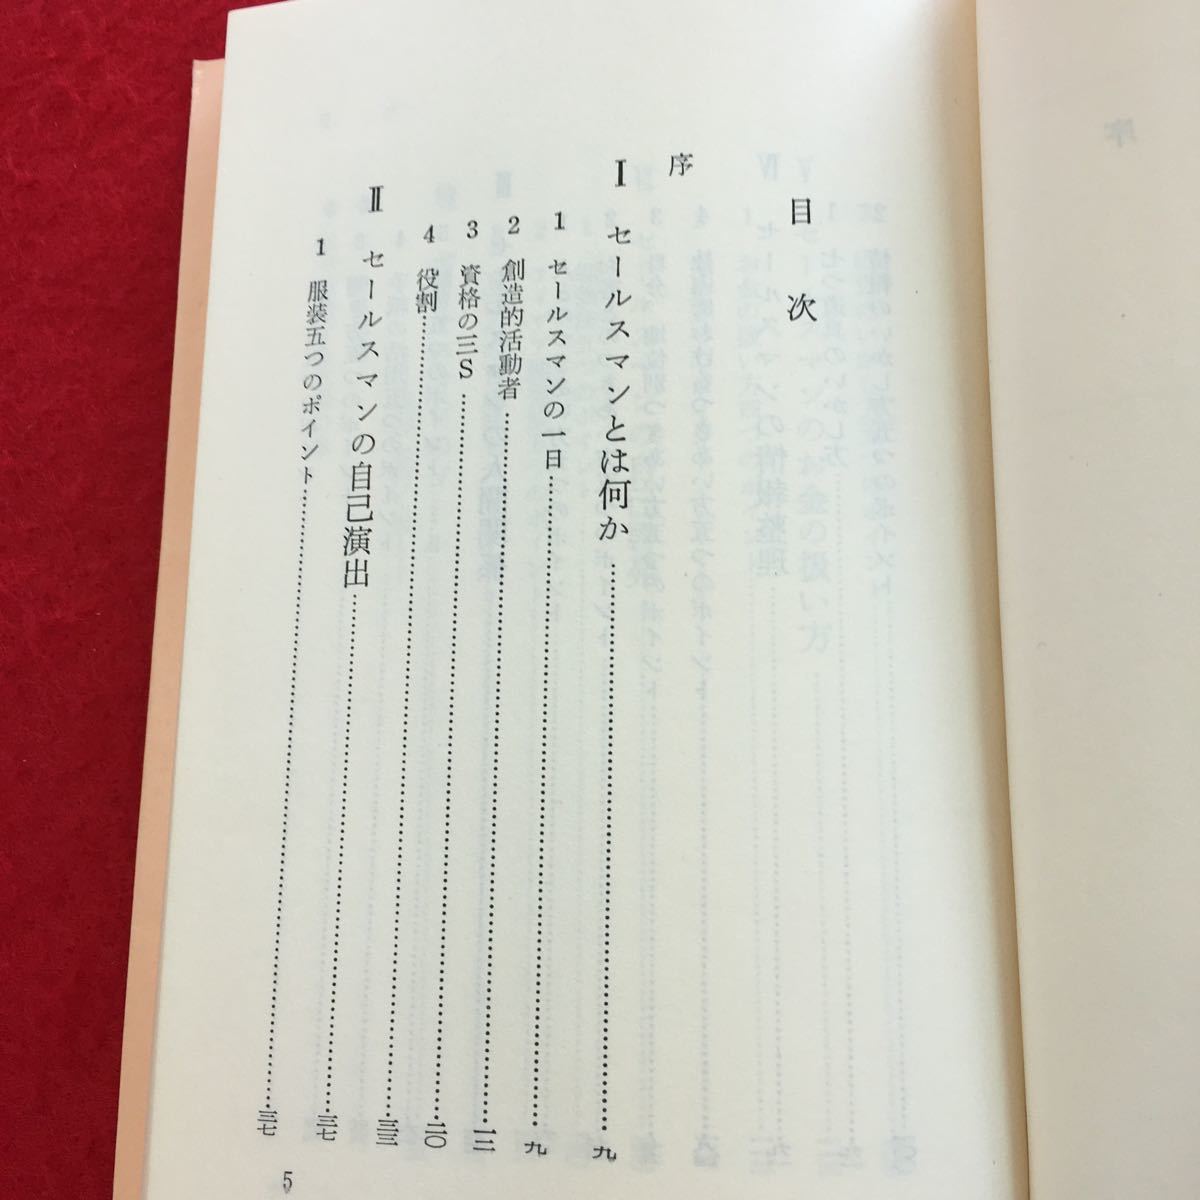 目次
序
Ⅰ セールスマンとは何か……九
1 セールスマンの一日……九
2 創造的活動者……一二
3 資格の三S……二〇
4 役割……三三
Ⅱ セールスマンの自己演出……三七
1 服装五つのポイント……三七
5